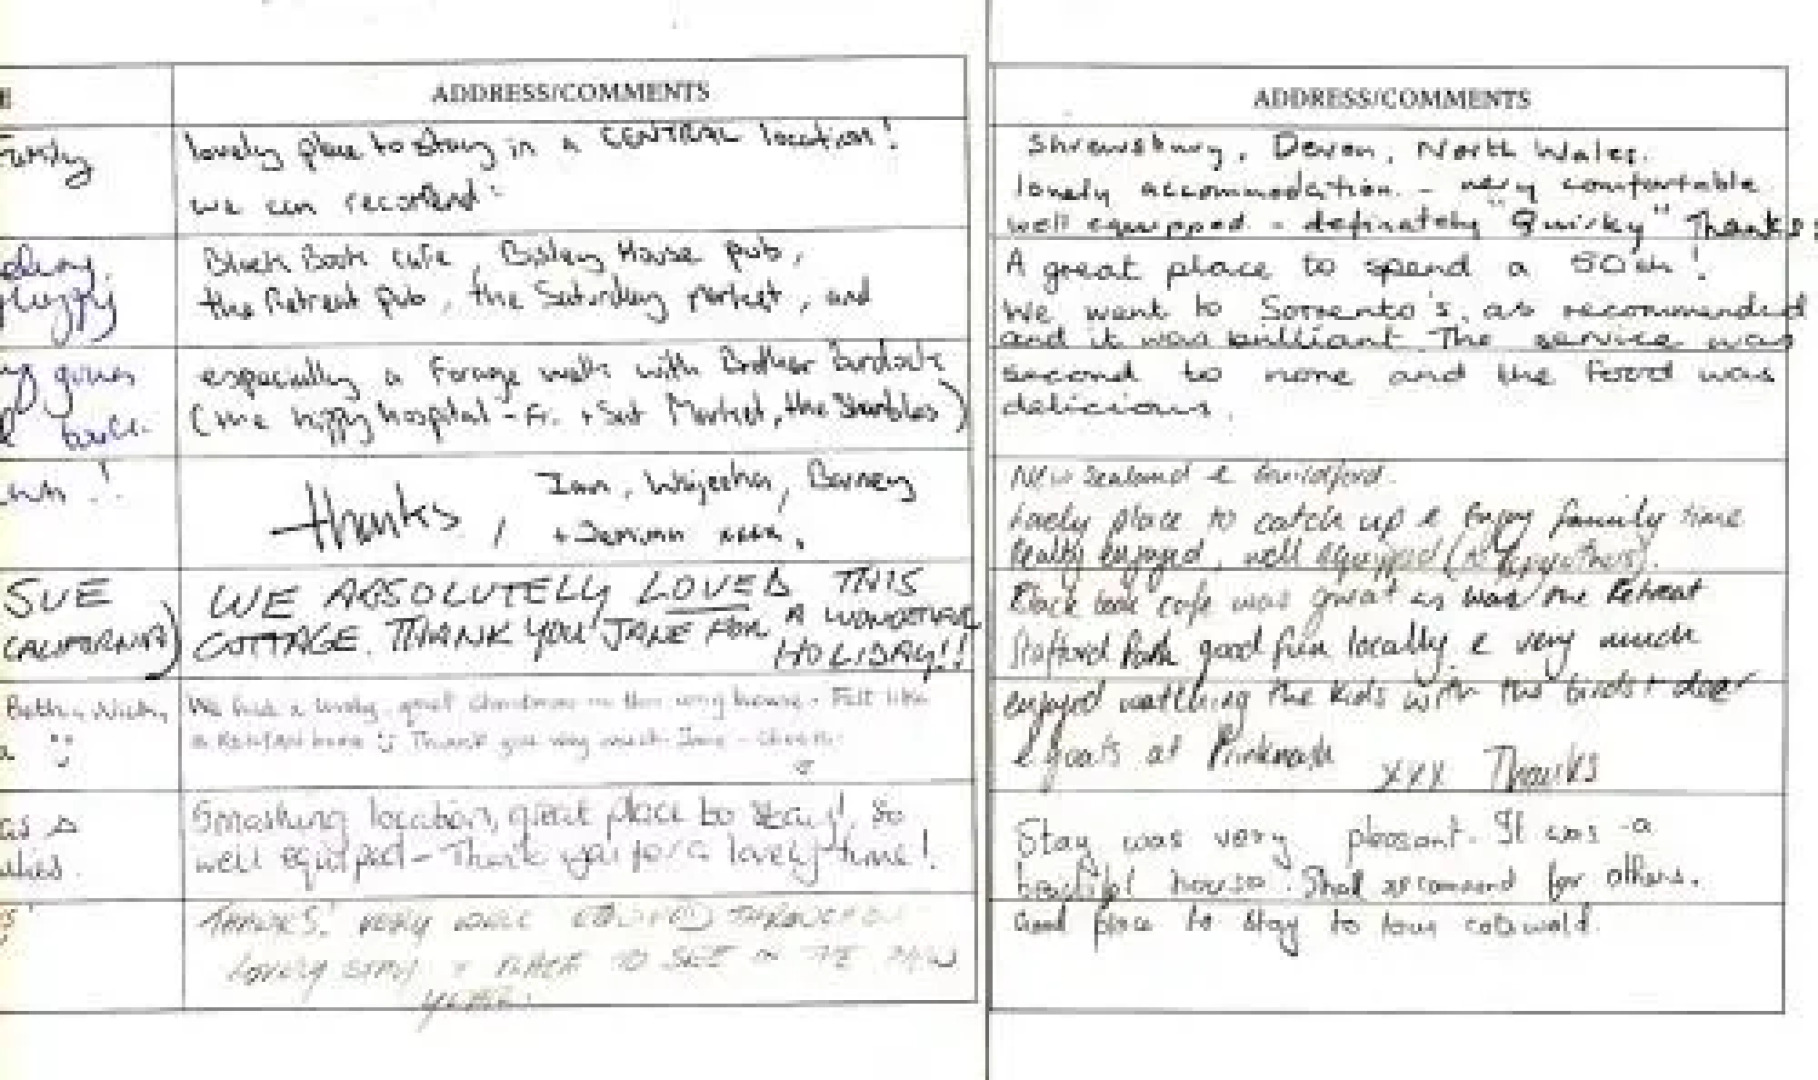 ADDRESS/COMMENTS
Family
lovely place to stay in a CENTRAL location!
we can recomend:
Black Book cafe, Bisley House pub,
the Retreat pub, the Saturday market, and
especially a forage walk with Brother Burdock
(the hippy hospital - Fri. + Sat Market, the Shambles)
thanks, Ian, Barney
+ xxxx.
SUE
CALIFORNIA)
WE ABSOLUTELY LOVED THIS
COTTAGE. THANK YOU JANE FOR A WONDERFUL
HOLIDAY!!
We had a lovely, quiet Christmas in this house. Felt like
a home Thank you very much Jane -
Smashing location, great place to stay!, so
well equipped - Thank you for a lovely time!
THANKS! VERY WELL THROUGHOUT
LOVELY STAY + PLACE TO SEE IN THE NEW
YEAR.
ADDRESS/COMMENTS
Shrewsbury, Devon, North Wales.
lovely accommodation - very comfortable
well equipped. - definately "Quirky" Thanks
A great place to spend a 50th!
We went to Sorrento's, as recommended
and it was brilliant The service was
second to none and the food was
delicious.
New Zealand & Guildford.
Lovely place to catch up & enjoy family time
Really enjoyed, well equipped
Black book cafe was great as was the Retreat
Stafford Park good fun locally & very much
enjoyed watching the kids with the birds + deer
& goats at Prinknash xxx Thanks
Stay was very pleasant. It was a
beautiful house. Shal recomend for others.
Good place to stay to tour cotswold.